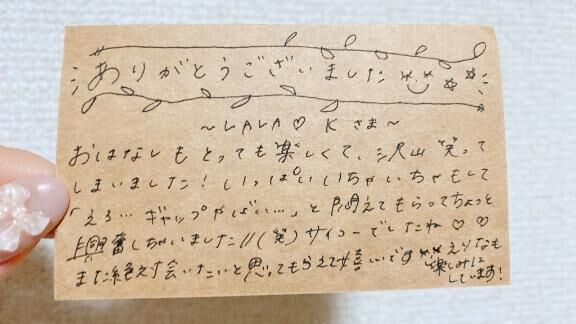 ありがとうございました
～LALA♡ Kさま～
おはなしもとっても楽しくて、沢山笑って
しまいました！いっぱいいちゃいちゃもして
「えろ… ギャップやばい…」と悶えてもらってちょっと
興奮しちゃいました!!(笑)サイコーでしたね♡♡
また絶対会いたいと思ってもらえて嬉しいです
えりなも
楽しみに
しています！